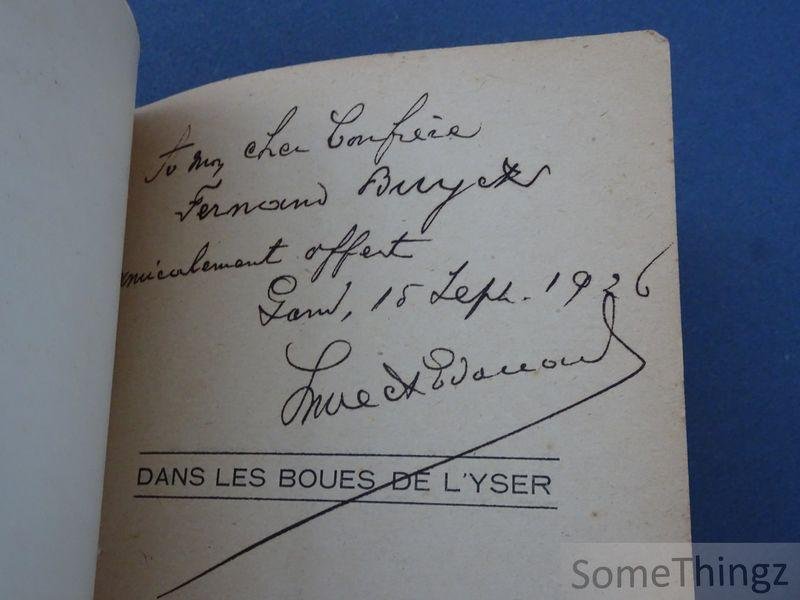 To mon cher Confrère
Fernand Buyck
amicalement offert
Gand, 15 Sept. 1926
Edouard
DANS LES BOUES DE L'YSER
SomeThingz